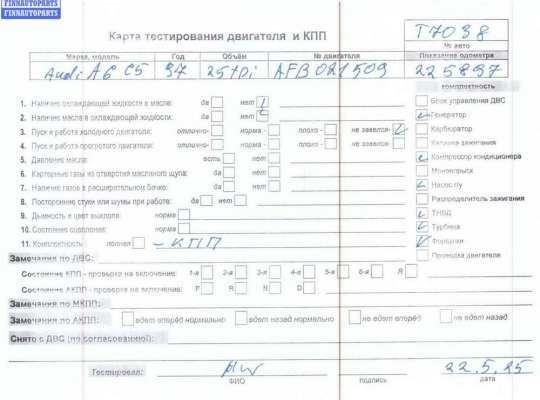 FINNAUTOPARTS
FINNAUTOPARTS
Карта тестирования двигателя и КПП
T7038
№ авто
Марка, модель Год Объём № двигателя Показание одометра
Audi A6 C5 97 25TDi AFB021509 225897
комплектность
1. Наличие охлаждающей жидкости в масле: да нет
2. Наличие масла в охлаждающей жидкости: да нет
3. Пуск и работа холодного двигателя: отлично- норма - плохо - не завелся-
4. Пуск и работа прогретого двигателя: отлично- норма - плохо - не завелся-
5. Давление масла: есть нет
6. Картерные газы из отверстия масляного щупа: да нет
7. Наличие газов в расширительном бачке: да нет
8. Посторонние стуки или шумы при работе: да нет
9. Дымность и цвет выхлопа: норма
10. Состояние сцепления: норма
11. Комплектность: полная - КПП
Блок управления ДВС
Генератор
Карбюратор
Катушка зажигания
Компрессор кондиционера
Моновпрыск
Насос гу
Распределитель зажигания
ТНВД
Турбина
Форсунки
Проводка двигателя
Замечания по ДВС:
Состояние КПП - проверка на включение: 1-я 2-я 3-я 4-я 5-я 6-я R
Состояние АКПП - проверка на включение: P R N D
Замечания по МКПП:
Замечания по АКПП: едет вперёд нормально едет назад нормально не едет вперёд не едет назад
Снято с ДВС (по согласованию):
Тестировал: 22.5.25
ФИО подпись дата